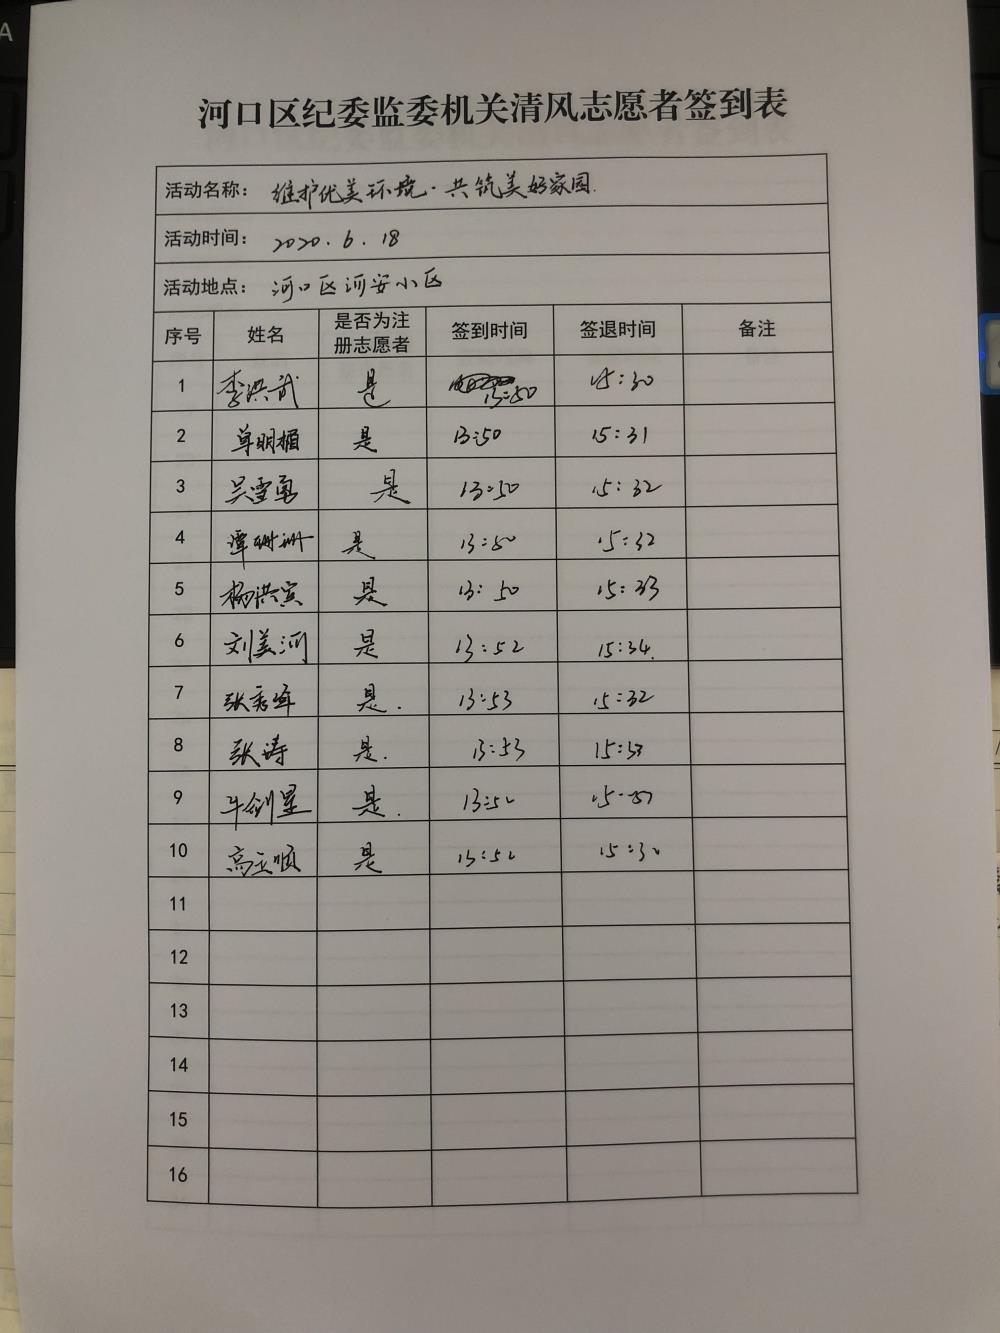 河口区纪委监委机关清风志愿者签到表
活动名称： 维护优美环境·共筑美好家园.
活动时间： 2020.6.18
活动地点： 河口区河安小区
序号 姓名 是否为注册志愿者 签到时间 签退时间 备注
1 李洪武 是 13:50 15:30
2 单明楣 是 13:50 15:31
3 吴雪勇 是 13:50 15:32
4 谭珊珊 是 13:50 15:32
5 杨洪宾 是 13:50 15:33
6 刘美河 是 13:52 15:34.
7 张秀峰 是. 13:53 15:32
8 张涛 是. 13:53 15:33
9 牛剑星 是.
10 高立顺 是
11
12
13
14
15
16